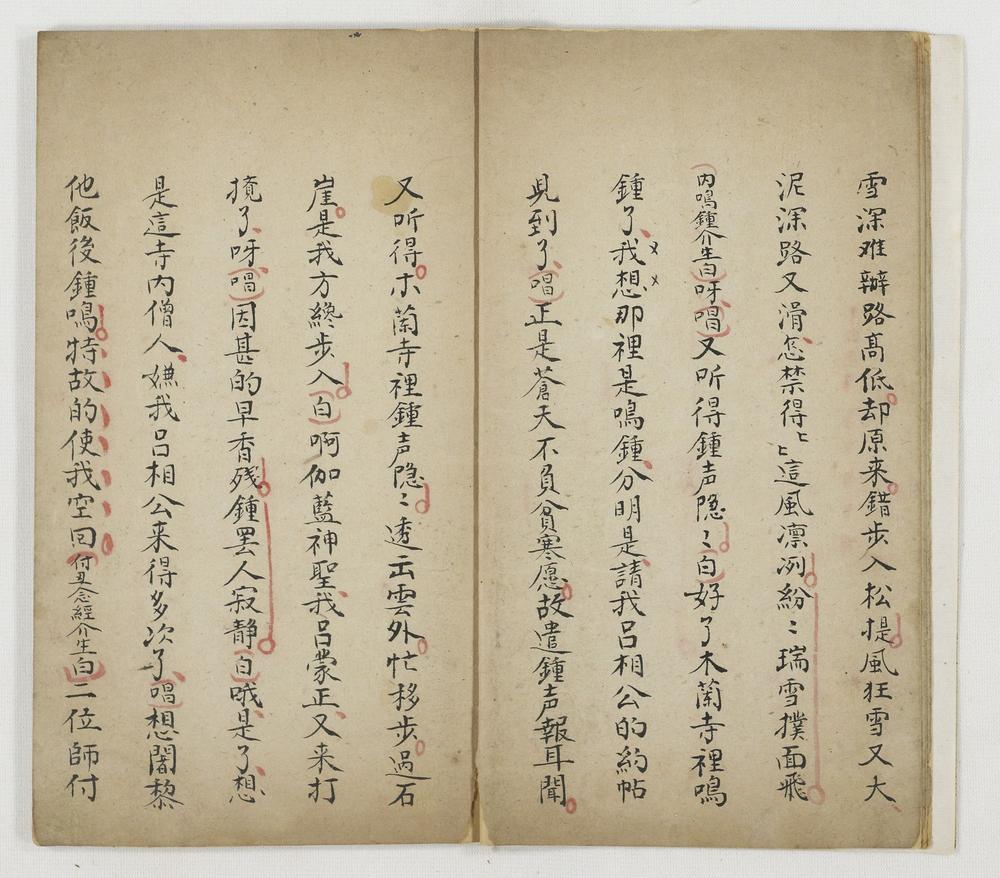 雪深难辦路髙低却原来錯步入松提風狂雪又大
泥深路又滑怎禁得〻〻這風凛冽紛〻瑞雪撲面飛
内鳴鍾介生白呀唱又听得鍾声隐〻白好了木蘭寺裡鳴
鍾了我想那裡是鳴鍾分明是請我吕相公的約帖
見到了唱正是蒼天不負貧寒愿故遣鍾声報耳聞
又听得木蘭寺裡鍾声隐〻透云雲外忙移步過石
崖是我方纔步入白啊伽藍神聖我吕蒙正又来打
攪了呀唱因甚的早香残鍾罢人寂静白哦是了想
是這寺内僧人嫌我吕相公来得多次了唱想闍黎
他飯後鍾鳴特故的使我空回付丑念經介生白二位師付